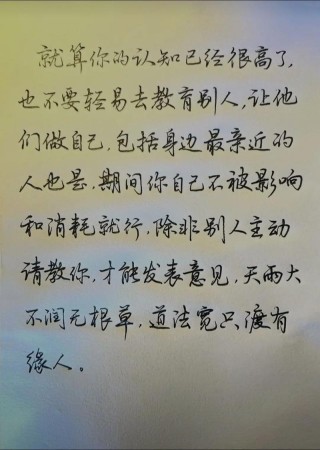 就算你的认知已经很高了,
也不要轻易去教育别人,让他
们做自己,包括身边最亲近的
人也是.期间你自己不被影响
和消耗就行,除非别人主动
请教你,才能发表意见,天雨大
不润无根草,道法宽只渡有
缘人。